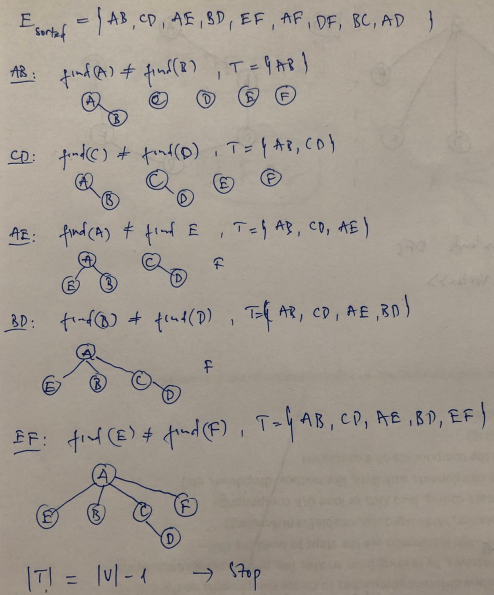 E sorted = { AB, CD, AE, BD, EF, AF, DF, BC, AD }
AB: find(A) ≠ find(B) , T = {AB}
A B C D E F
CD: find(C) ≠ find(D) , T = { AB, CD}
A B C D E F
AE: find(A) ≠ find E , T = { AB, CD, AE}
A E B C D F
BD: find(B) ≠ find(D) , T={ AB, CD, AE, BD}
A E B C D F
EF: find(E) ≠ find(F) , T = { AB, CD, AE, BD, EF}
A E B C F D
|T| = |V| - 1 → Stop